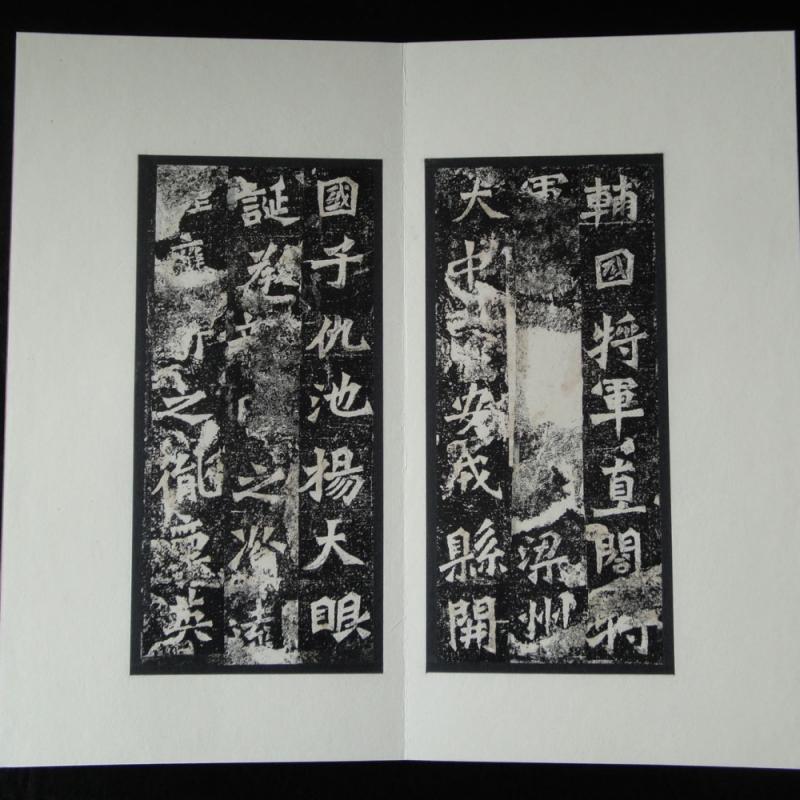 輔國將軍直閤將
軍 梁州
大中 安戎縣開
國子仇池楊大眼
誕 之 遠
應 之胤稟英